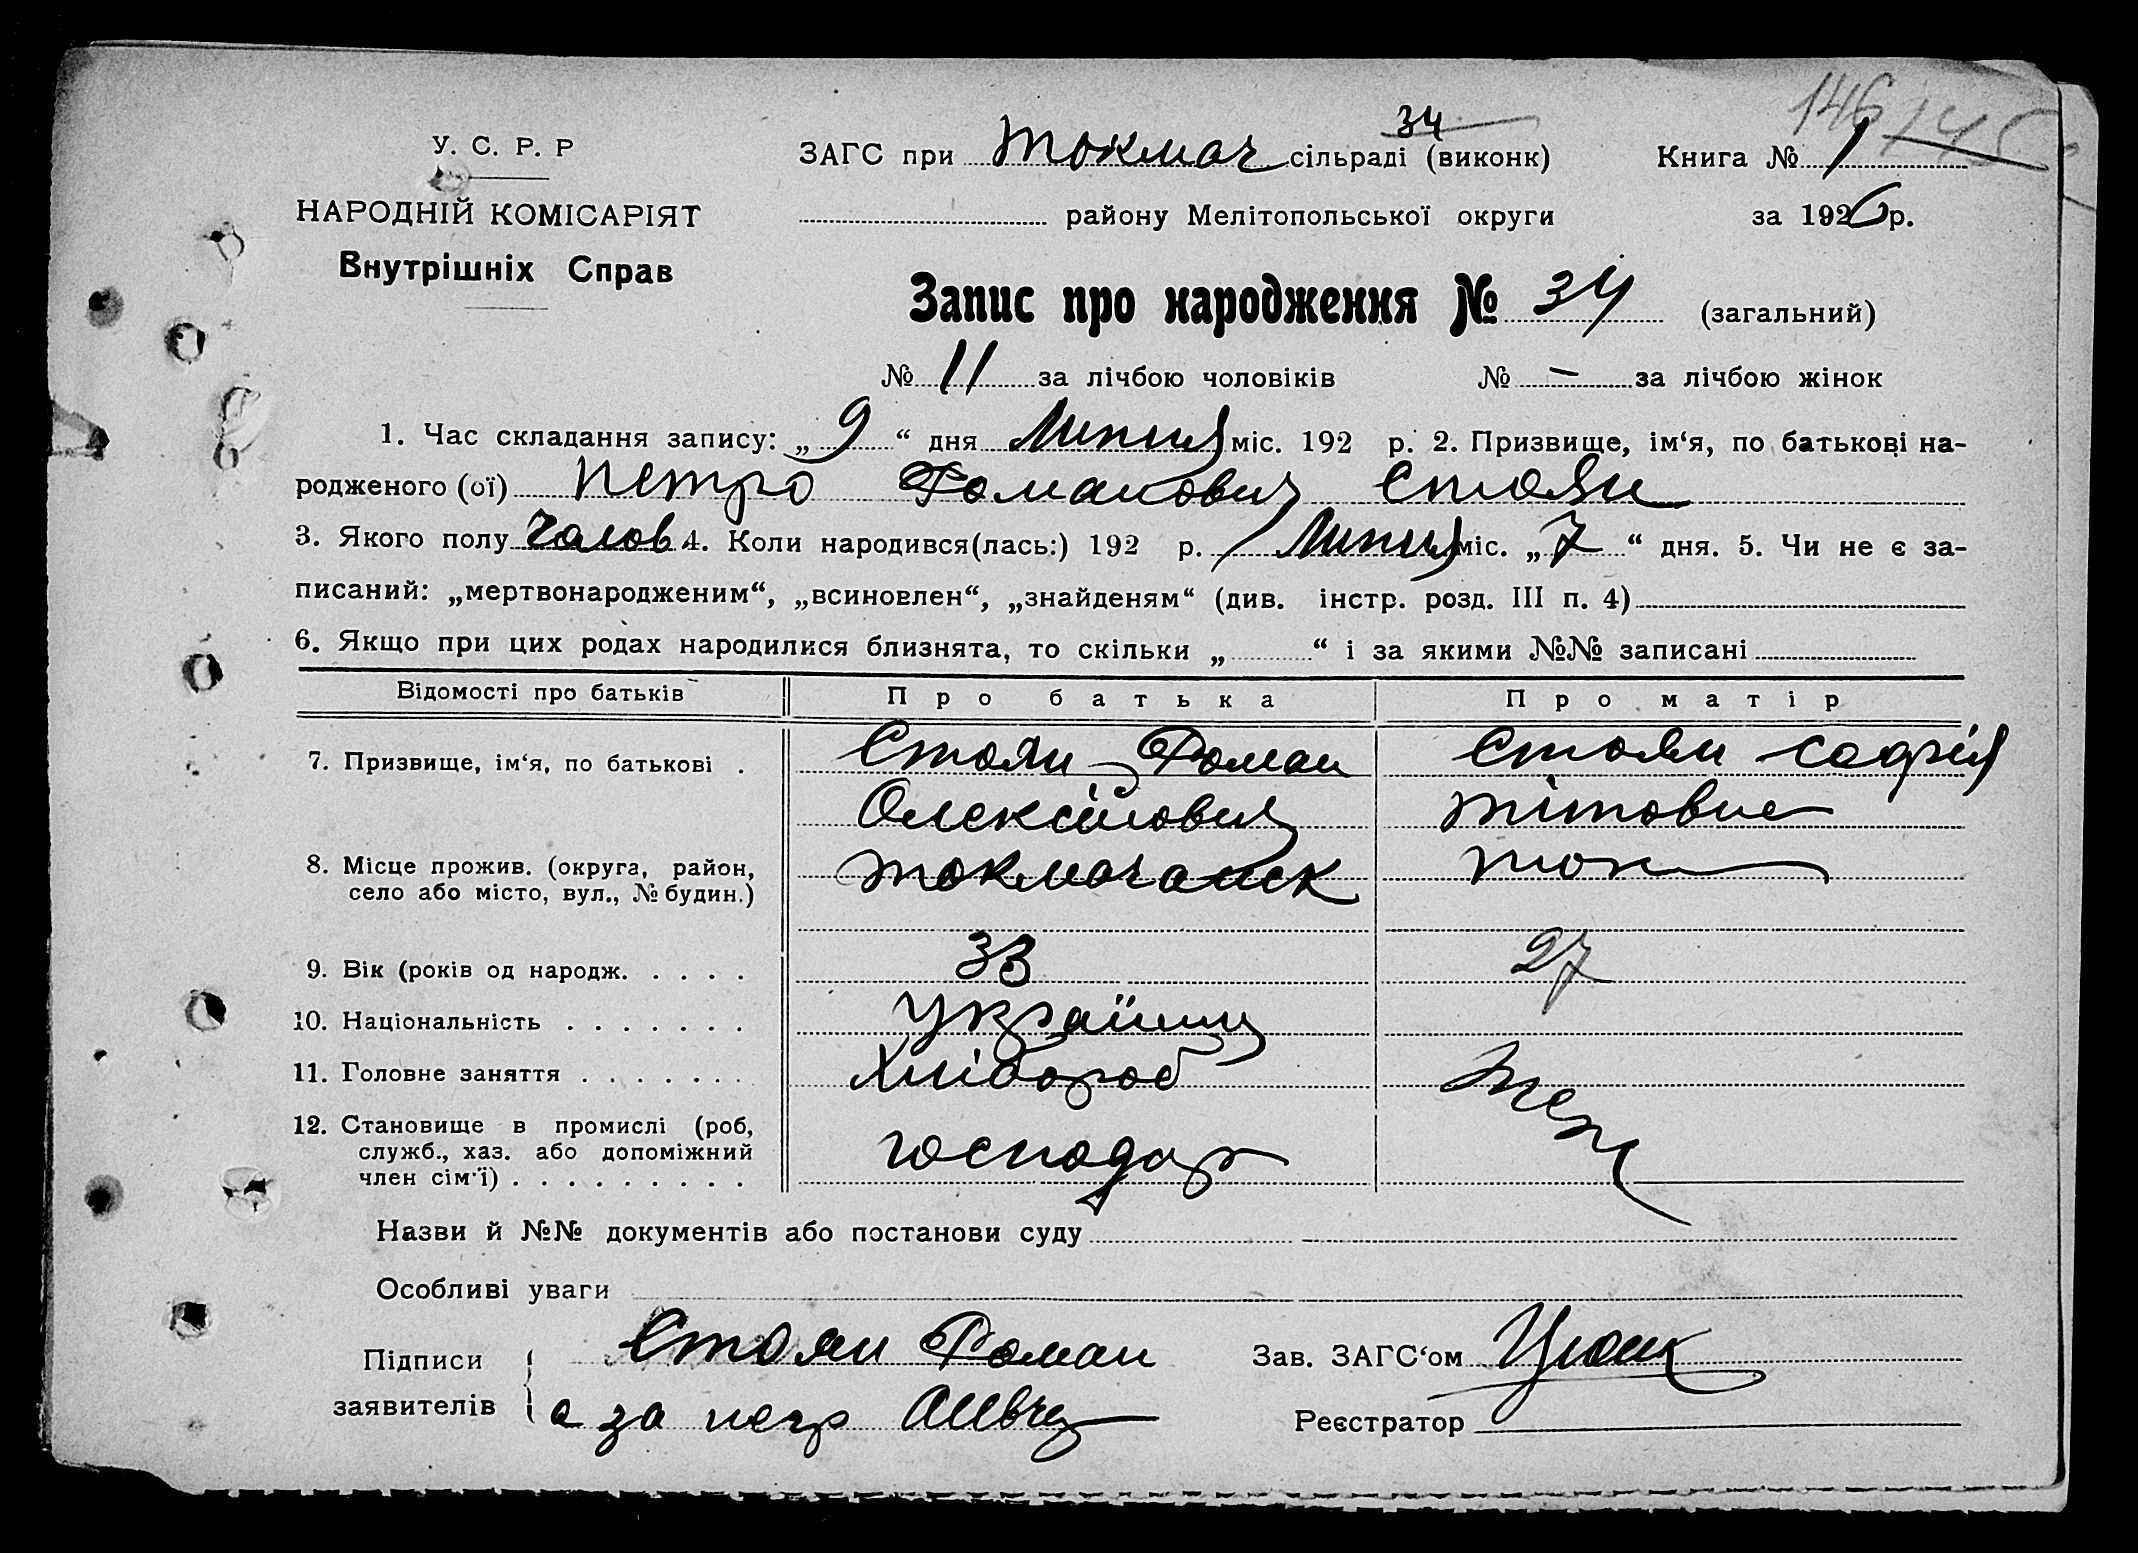 146 145
34
У. С. Р. Р
ЗАГС при Токмач сільраді (виконк)
Книга № 1
НАРОДНІЙ КОМІСАРІЯТ
району Мелітопольської округи
за 1926 р.
Внутрішніх Справ
Запис про народження № 34 (загальний)
№ 11 за лічбою чоловіків № - за лічбою жінок
1. Час складання запису: „ 9 “ дня Липня міс. 192 р. 2. Призвище, ім‘я, по батькові на-
родженого (ої) Петро Романович Стоян
3. Якого полу чолов 4. Коли народився(лась:) 192 р. Липня міс. „ 7 “ дня. 5. Чи не є за-
писаний: „мертвонародженим“, „всиновлен“, „знайденям“ (див. інстр. розд. III п. 4)
6. Якщо при цих родах народилися близнята, то скільки „ “ і за якими №№ записані
Відомості про батьків Про батька Про матір
7. Призвище, ім‘я, по батькові . Стоян Роман Стоян Софія
Олексійович Тітовне
8. Місце прожив. (округа, район,
село або місто, вул., № будин.)
Токмачанск ток
9. Вік (років од народж. . . . . 33 27
10. Національність . . . . . . . Українц
11. Головне заняття . . . . . . . Хлібороб
12. Становище в промислі (роб,
служб., хаз. або допоміжний
член сім‘ї) . . . . . . . . .
господар
Назви й №№ документів або постанови суду
Особливі уваги
Підписи
заявителів
Стоян Роман
а за негр
Зав. ЗАГС‘ом
Реєстратор